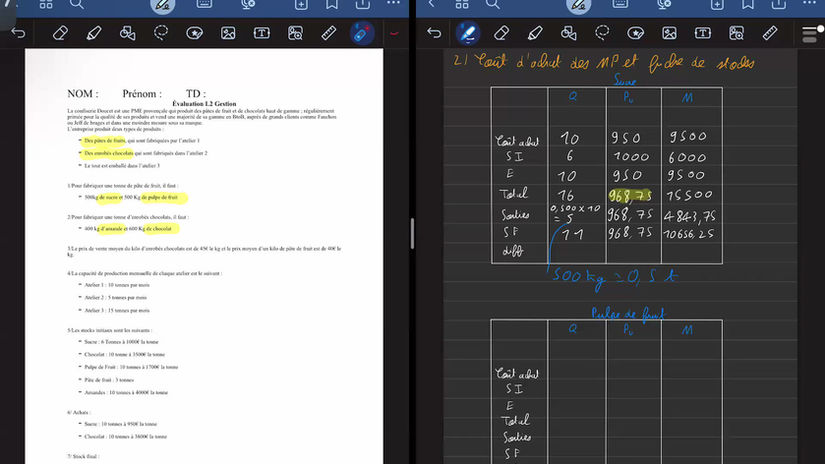 NOM : Prénom : TD :
Évaluation L2 Gestion
La confiserie Doucet est une PME provençale qui produit des pâtes de fruit et de chocolats haut de gamme ; régulièrement
primée pour la qualité de ses produits et vend une majorité de sa gamme en BtoB, auprès de grands clients comme Fauchon
ou Jeff de bruges et dans une moindre mesure sous sa marque.
L'entreprise produit deux types de produits :
- Des pâtes de fruits, qui sont fabriquées par l'atelier 1
- Des enrobés chocolats qui sont fabriqués dans l'atelier 2
- Le tout est emballé dans l'atelier 3
1/Pour fabriquer une tonne de pâte de fruit, il faut :
- 500kg de sucre et 500 Kg de pulpe de fruit
2/Pour fabriquer une tonne d'enrobés chocolats, il faut :
- 400 kg d'amande et 600 Kg de chocolat
3/Le prix de vente moyen du kilo d'enrobés chocolats est de 45€ le kg et le prix moyen d'un kilo de pâte de fruit est de 40€ le
kg.
4/La capacité de production mensuelle de chaque atelier est le suivant :
- Atelier 1 : 10 tonnes par mois
- Atelier 2 : 5 tonnes par mois
- Atelier 3 : 15 tonnes par mois
5/Les stocks initiaux sont les suivants :
- Sucre : 6 Tonnes à 1000€ la tonne
- Chocolat : 10 tonne à 3500€ la tonne
- Pulpe de Fruit : 10 tonnes à 1700€ la tonne
- Pâte de fruit : 3 tonnes
- Amandes : 10 tonnes à 4000€ la tonne
6/ Achats :
- Sucre : 10 tonnes à 950€ la tonne
- Chocolat : 10 tonnes à 3600€ la tonne
7/ Stock final :
2/ Coût d'achat des MP et fiche de stocks
Sucre
Q Pu M
Coût achat 10 950 9500
SI 6 1000 6000
E 10 950 9500
Total 16 968,75 15500
Sorties 0,500 x 10 = 5 968,75 4843,75
SF 11 968,75 10656,25
diff
500 kg = 0,5 t
Pulpe de fruit
Q Pu M
Coût achat
SI
E
Total
Sorties
SF